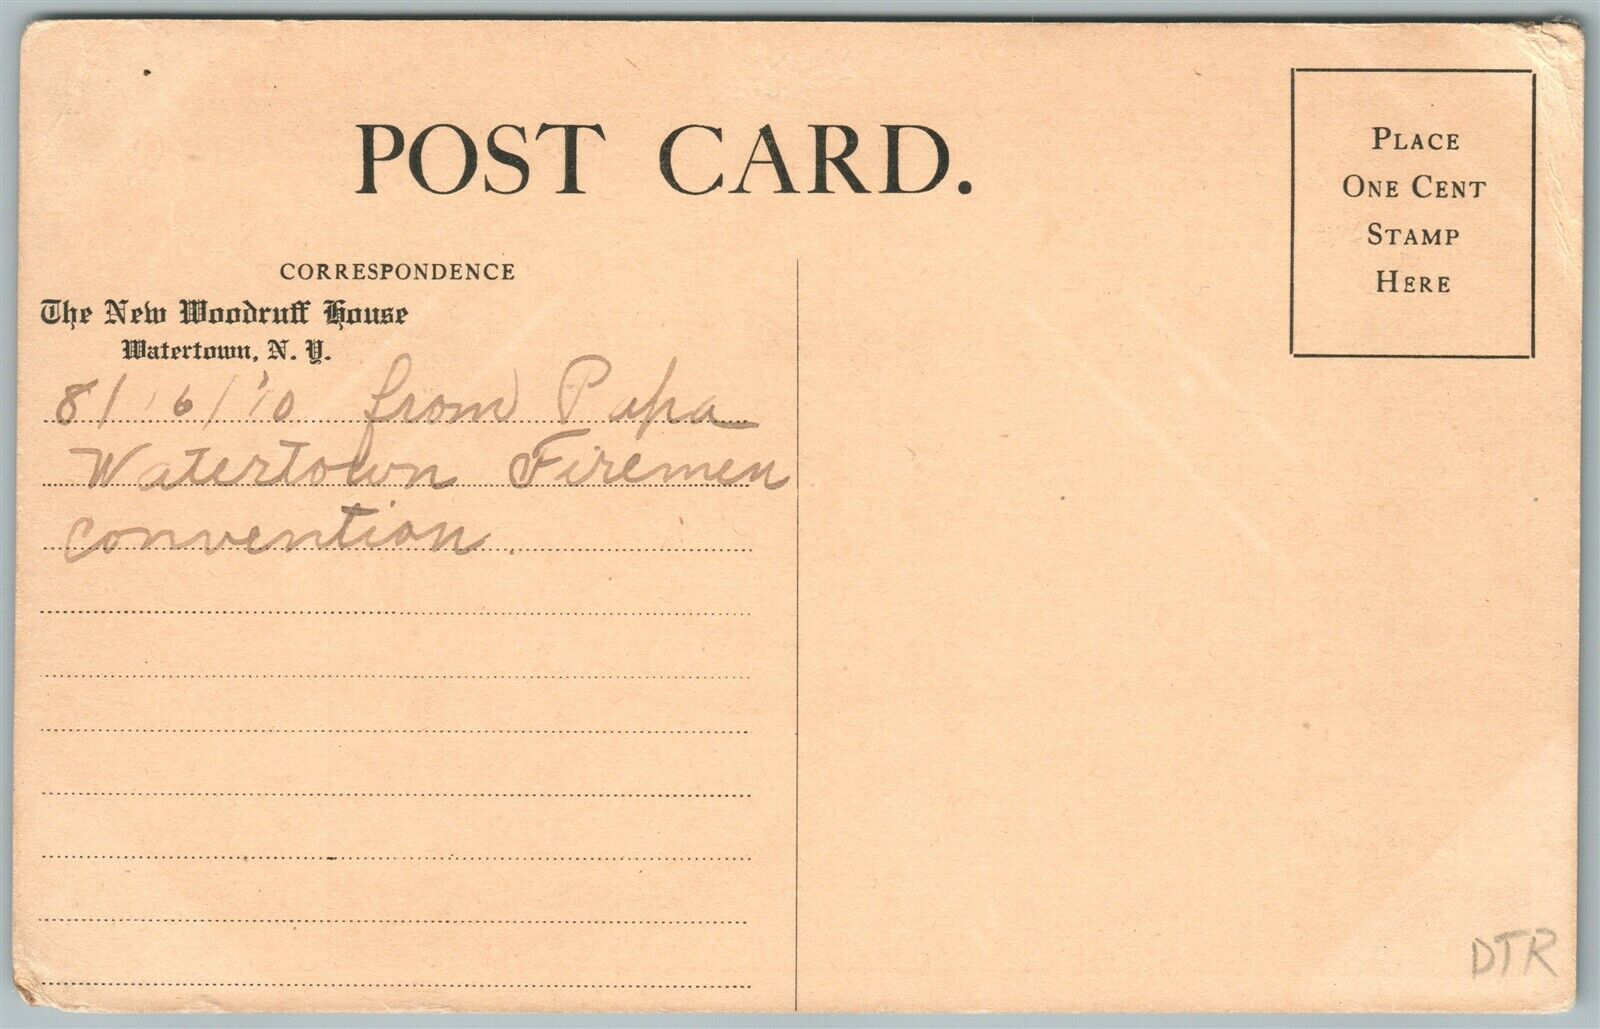 POST CARD.
PLACE
ONE CENT
STAMP
HERE
CORRESPONDENCE
The New Woodruff House
Watertown, N. Y.
8/16/10 from Papa
Watertown Firemen
Convention.
DTR